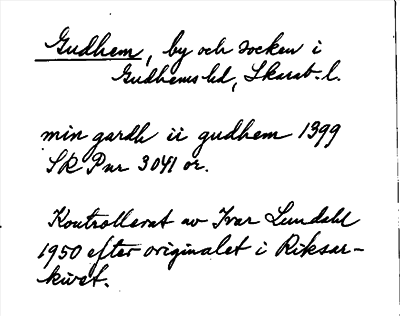 Gudhem, by och socken i
Gudhems hd, Skarab. l.
min gardh ii gudhem 1399
SRPnr 3041 or.
Kontrollerat av Ivar Lundahl
1950 efter originalet i Riksar-
kivet.